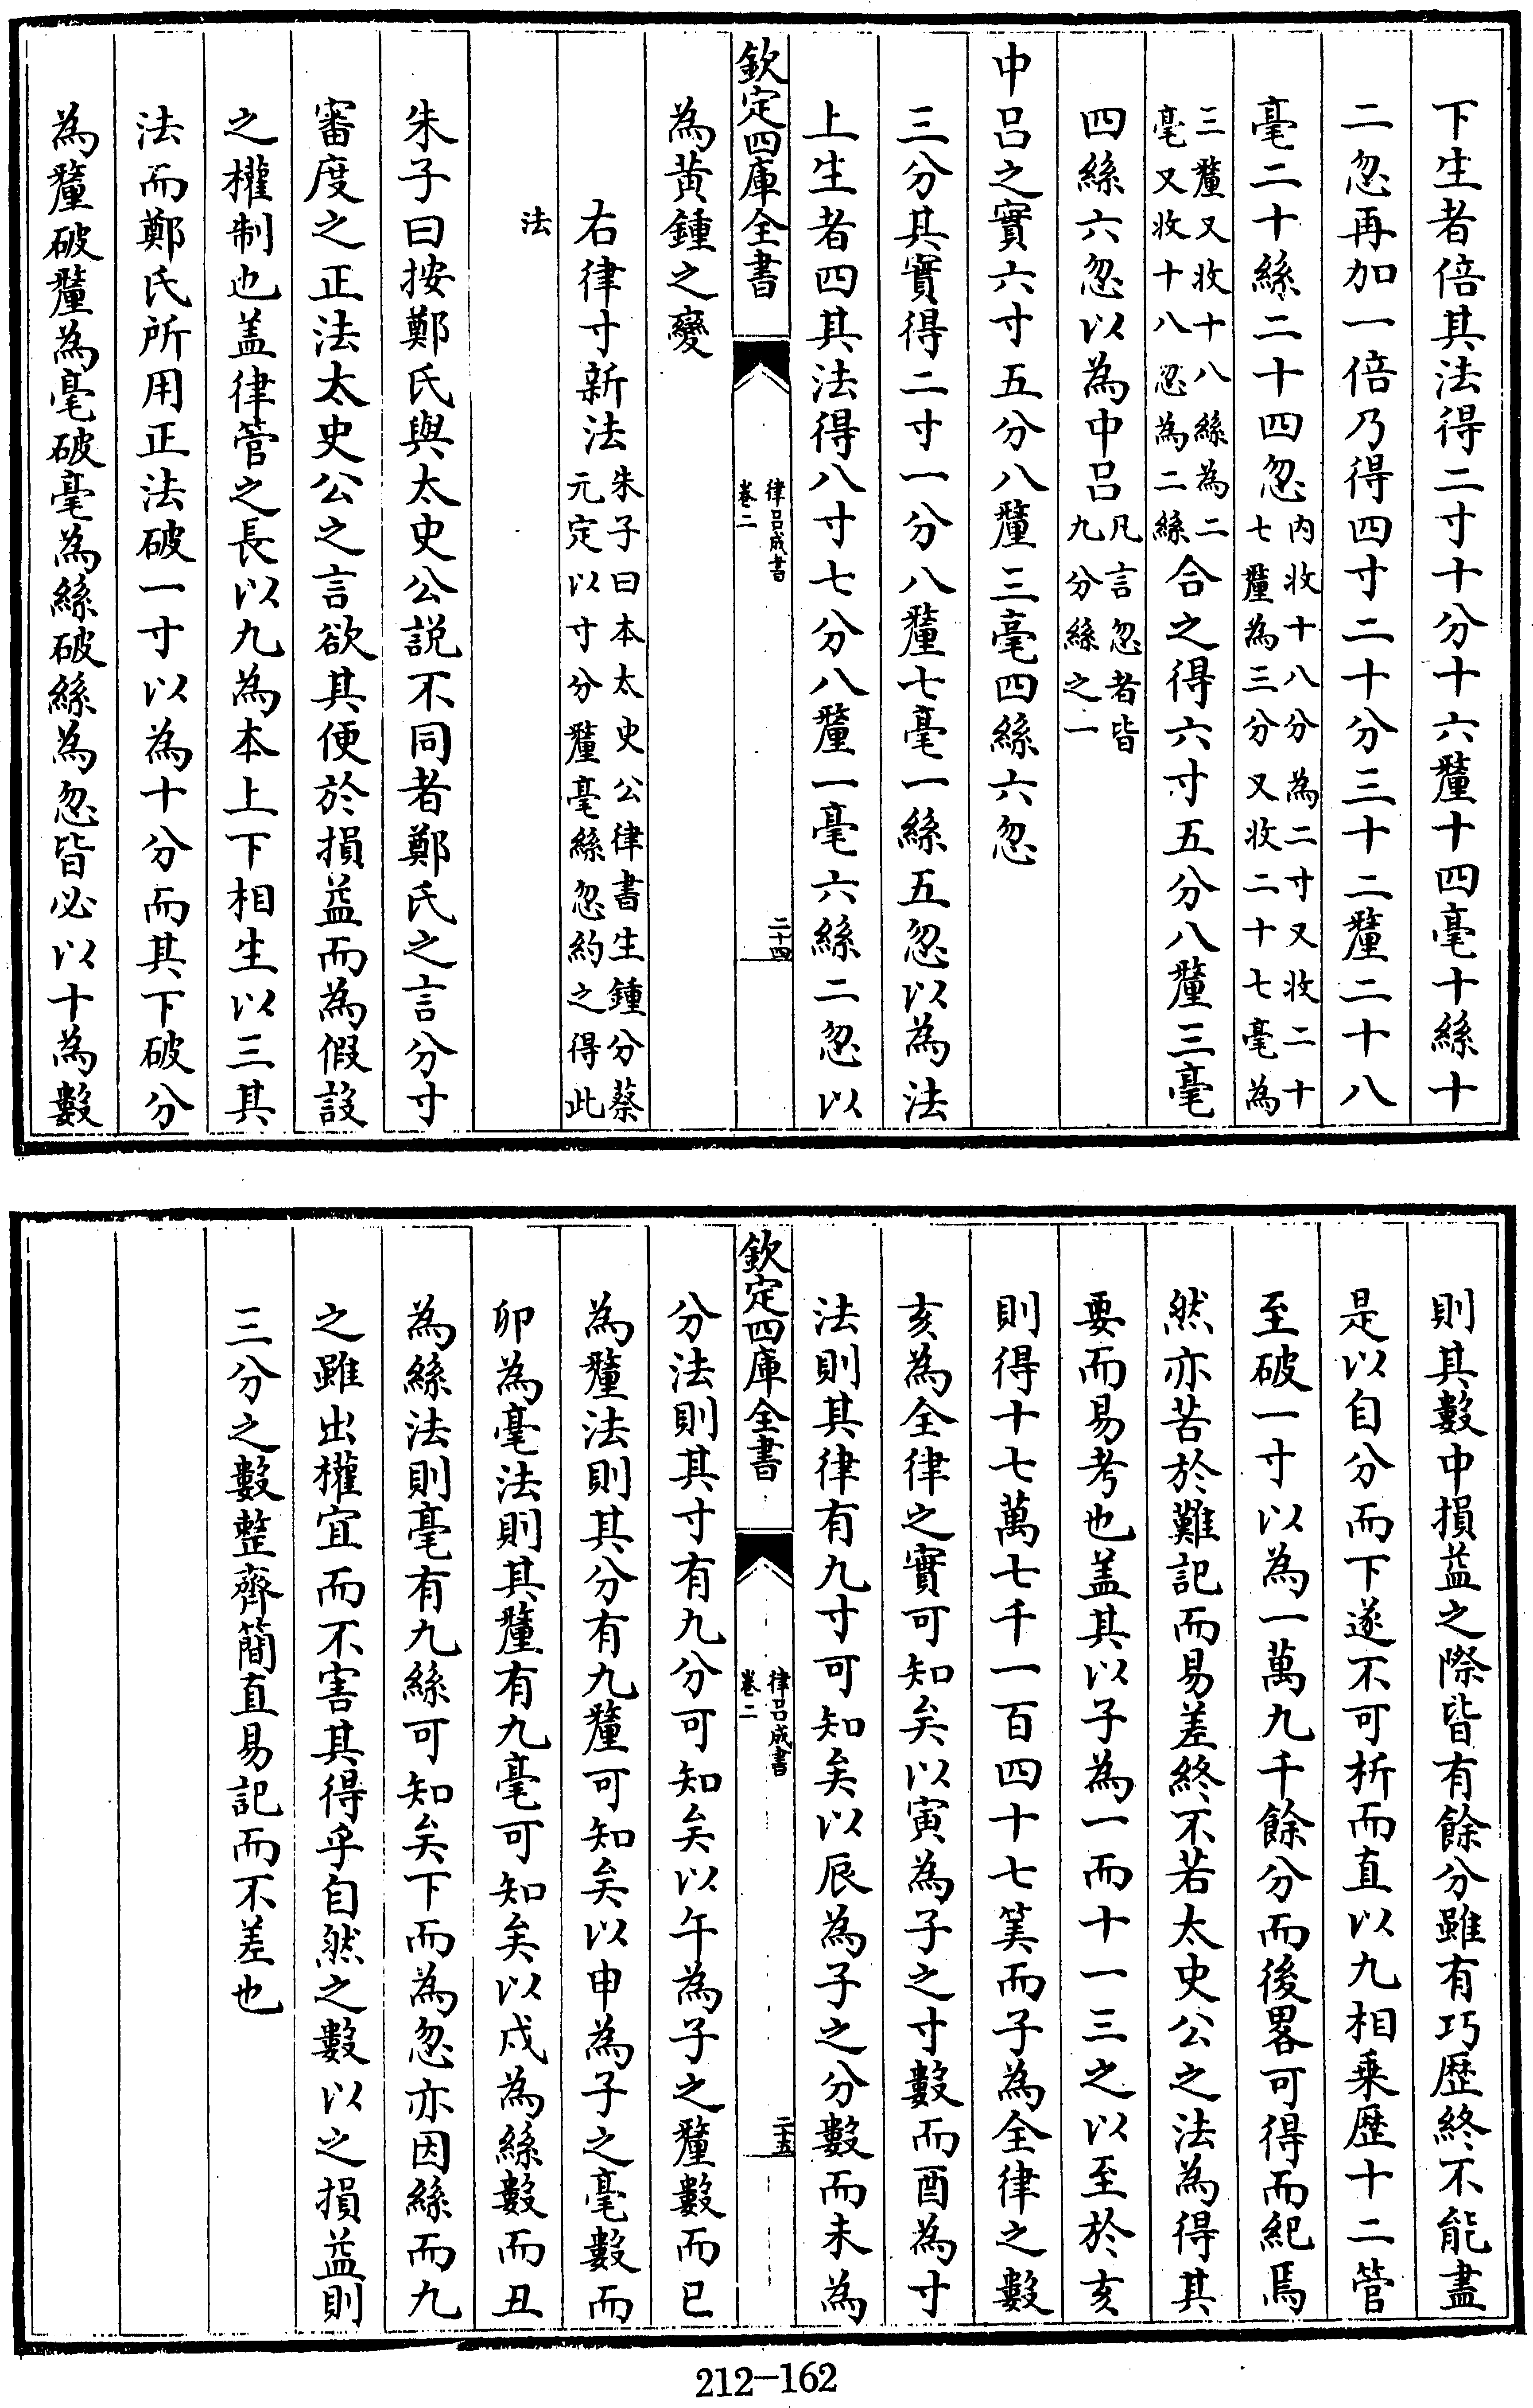 下生者倍其法得二寸十分十六釐十四毫十絲十
二忽再加一倍乃得四寸二十分三十二釐二十八
毫二十絲二十四忽內收十八分為二寸又收二十
七釐為三分又收二十七毫為
三釐又收十八絲為二
毫又收十八忽為二絲合之得六寸五分八釐三毫
四絲六忽以為中呂凡言忽者皆
九分絲之一
中呂之實六寸五分八釐三毫四絲六忽
三分其實得二寸一分八釐七毫一絲五忽以為法
上生者四其法得八寸七分八釐一毫六絲二忽以
欽定四庫全書
律呂成書
卷二
二十四
為黃鍾之變
右律寸新法朱子曰本太史公律書生鍾分蔡
元定以寸分釐毫絲忽約之得此
法
朱子曰按鄭氏與太史公說不同者鄭氏之言分寸
審度之正法太史公之言欲其便於損益而為假設
之權制也盖律管之長以九為本上下相生以三其
法而鄭氏所用正法破一寸以為十分而其下破分
為釐破釐為毫破毫為絲破絲為忽皆必以十為數
則其數中損益之際皆有餘分雖有巧歷終不能盡
是以自分而下遂不可析而直以九相乘歷十二管
至破一寸以為一萬九千餘分而後畧可得而紀焉
然亦苦於難記而易差終不若太史公之法為得其
要而易考也盖其以子為一而十一三之以至於亥
則得十七萬七千一百四十七筭而子為全律之數
亥為全律之實可知矣以寅為子之寸數而酉為寸
法則其律有九寸可知矣以辰為子之分數而未為
欽定四庫全書
律呂成書
卷二
二十五
分法則其寸有九分可知矣以午為子之釐數而巳
為釐法則其分有九釐可知矣以申為子之毫數而
卯為毫法則其釐有九毫可知矣以戌為絲數而丑
為絲法則毫有九絲可知矣下而為忽亦因絲而九
之雖出權宜而不害其得乎自然之數以之損益則
三分之數整齊簡直易記而不差也
212-162